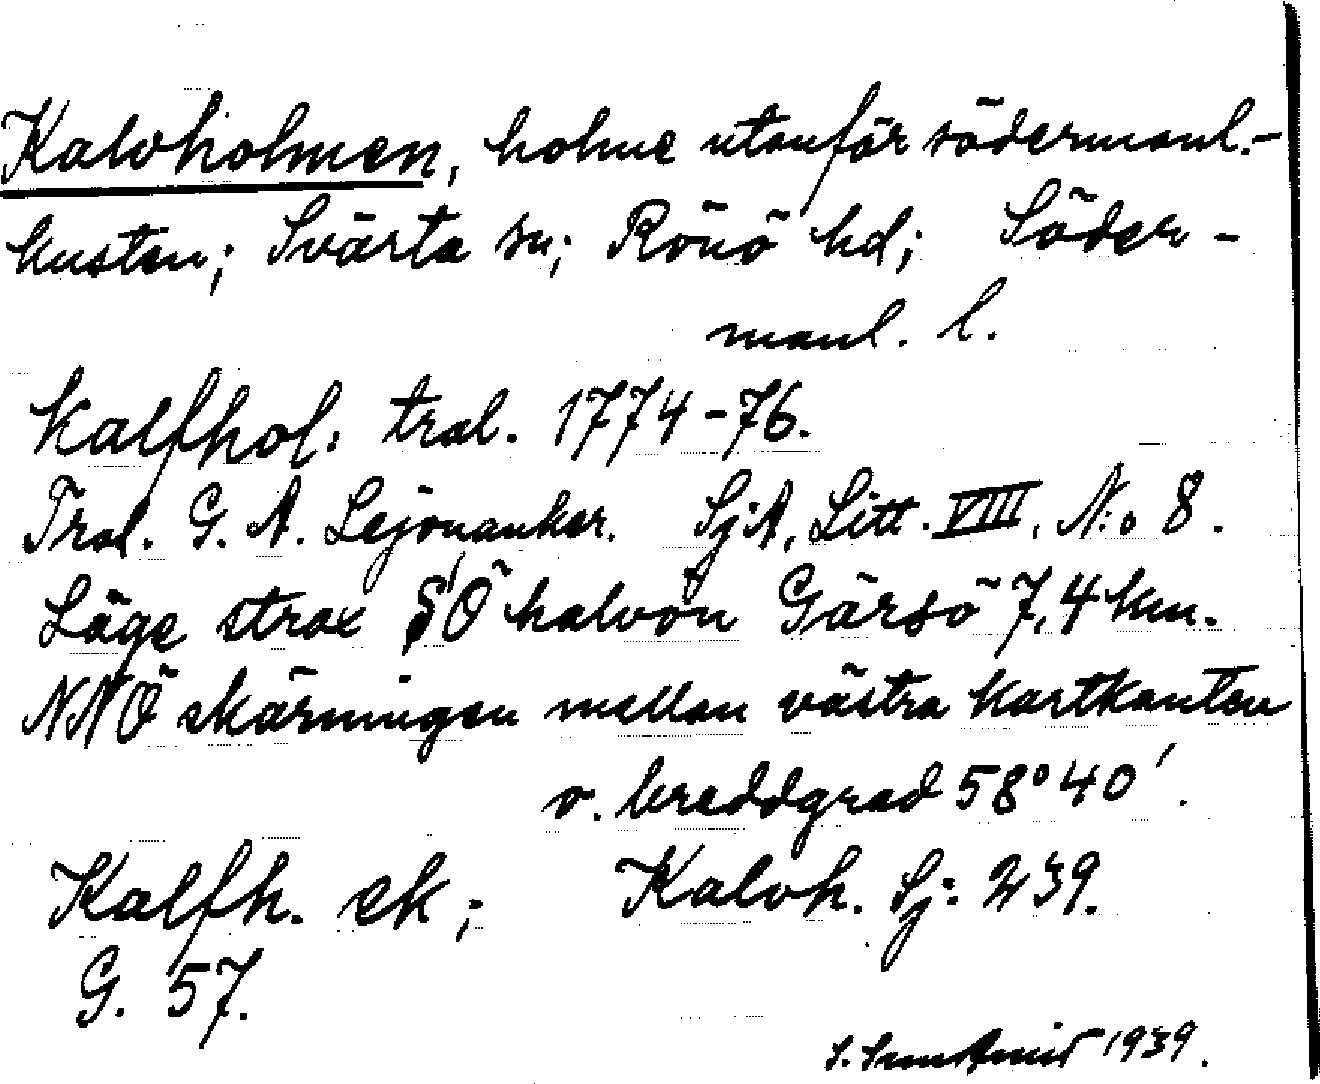 Kalvholmen, holme utanför södermanl.-
kusten; Svärta sn; Rönö hd; Söder-
manl. l.
Kalfhol: tral. 1774-76.
Tral. G. A. Lejonanker. SjA, Litt. VIII, N:o 8.
Läge strax SÖ halvön Gärsö 7,4 km.
NNÖ skärningen mellan västra kartkanten
o. breddgrad 58° 40'.
Kalfh. ek; Kalvh. Sj: 239.
G. 57.
1939.